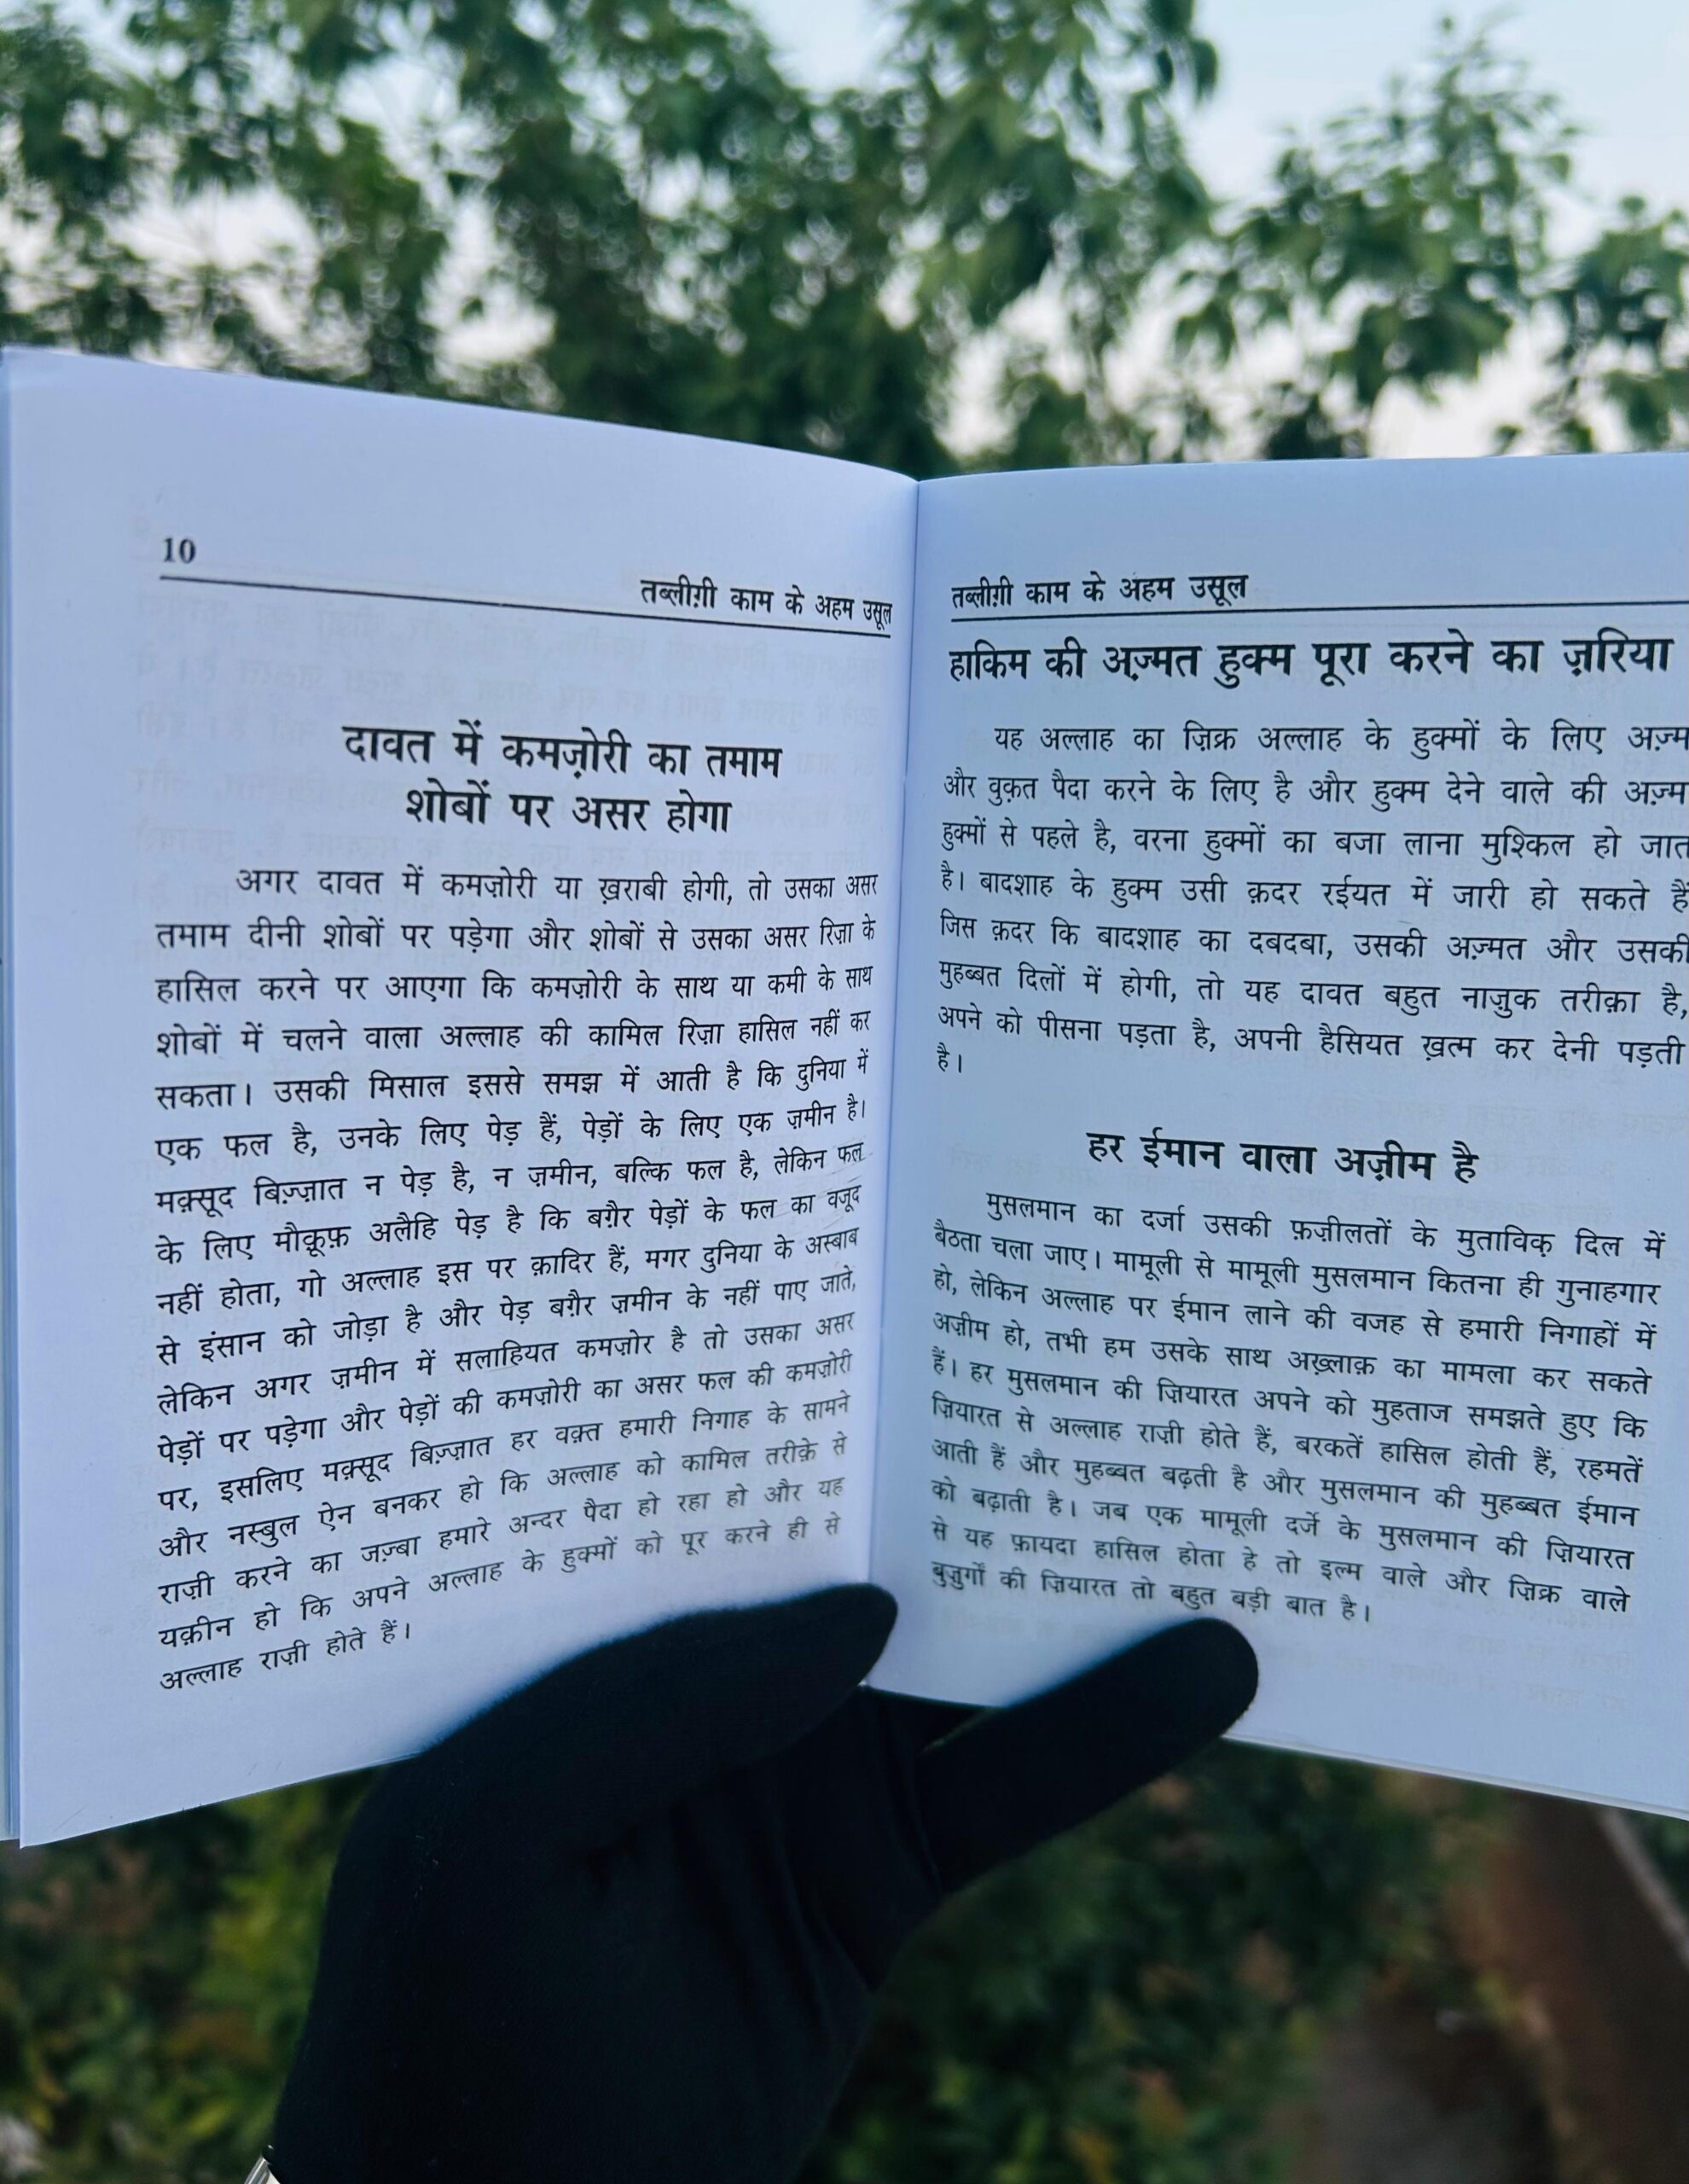 10
तब्लीग़ी काम के अहम उसूल
दावत में कमज़ोरी का तमाम
शोबों पर असर होगा
अगर दावत में कमज़ोरी या ख़राबी होगी, तो उसका असर
तमाम दीनी शोबों पर पड़ेगा और शोबों से उसका असर रिज़ा के
हासिल करने पर आएगा कि कमज़ोरी के साथ या कमी के साथ
शोबों में चलने वाला अल्लाह की कामिल रिज़ा हासिल नहीं कर
सकता। उसकी मिसाल इससे समझ में आती है कि दुनिया में
एक फल है, उनके लिए पेड़ हैं, पेड़ों के लिए एक ज़मीन है।
मक़्सूद बिज़्ज़ात न पेड़ है, न ज़मीन, बल्कि फल है, लेकिन फल
के लिए मौक़ूफ़ अलैहि पेड़ है कि बग़ैर पेड़ों के फल का वजूद
नहीं होता, गो अल्लाह इस पर क़ादिर हैं, मगर दुनिया के अस्बाब
से इंसान को जोड़ा है और पेड़ बग़ैर ज़मीन के नहीं पाए जाते,
लेकिन अगर ज़मीन में सलाहियत कमज़ोर है तो उसका असर
पेड़ों पर पड़ेगा और पेड़ों की कमज़ोरी का असर फल की कमज़ोरी
पर, इसलिए मक़्सूद बिज़्ज़ात हर वक़्त हमारी निगाह के सामने
और नस्बुल ऐन बनकर हो कि अल्लाह को कामिल तरीक़े से
राज़ी करने का जज़्बा हमारे अन्दर पैदा हो रहा हो और यह
यक़ीन हो कि अपने अल्लाह के हुक्मों को पूर करने ही से
अल्लाह राज़ी होते हैं।
तब्लीग़ी काम के अहम उसूल
हाकिम की अज़्मत हुक्म पूरा करने का ज़रिया
यह अल्लाह का ज़िक्र अल्लाह के हुक्मों के लिए अज़्म
और वुक़त पैदा करने के लिए है और हुक्म देने वाले की अज़्म
हुक्मों से पहले है, वरना हुक्मों का बजा लाना मुश्किल हो जात
है। बादशाह के हुक्म उसी क़दर रईयत में जारी हो सकते हैं
जिस क़दर कि बादशाह का दबदबा, उसकी अज़्मत और उसकी
मुहब्बत दिलों में होगी, तो यह दावत बहुत नाज़ुक तरीक़ा है,
अपने को पीसना पड़ता है, अपनी हैसियत ख़त्म कर देनी पड़ती
है।
हर ईमान वाला अज़ीम है
मुसलमान का दर्जा उसकी फ़ज़ीलतों के मुताविक़ दिल में
बैठता चला जाए। मामूली से मामूली मुसलमान कितना ही गुनाहगार
हो, लेकिन अल्लाह पर ईमान लाने की वजह से हमारी निगाहों में
अज़ीम हो, तभी हम उसके साथ अख़्लाक़ का मामला कर सकते
हैं। हर मुसलमान की ज़ियारत अपने को मुहताज समझते हुए कि
ज़ियारत से अल्लाह राज़ी होते हैं, बरकतें हासिल होती हैं, रहमतें
आती हैं और मुहब्बत बढ़ती है और मुसलमान की मुहब्बत ईमान
को बढ़ाती है। जब एक मामूली दर्जे के मुसलमान की ज़ियारत
से यह फ़ायदा हासिल होता हे तो इल्म वाले और ज़िक्र वाले
बुज़ुर्गों की ज़ियारत तो बहुत बड़ी बात है।